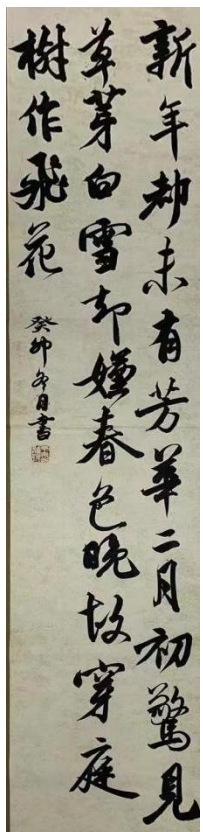 新年都未有芳華二月初驚見
草芽白雪却嫌春色晚故穿庭
樹作飛花
癸卯冬月書